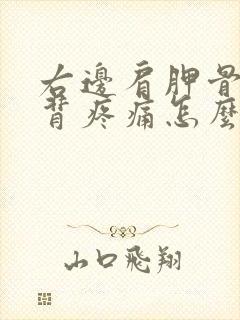 右邊肩胛骨
背疼痛怎麼
山口飛翔